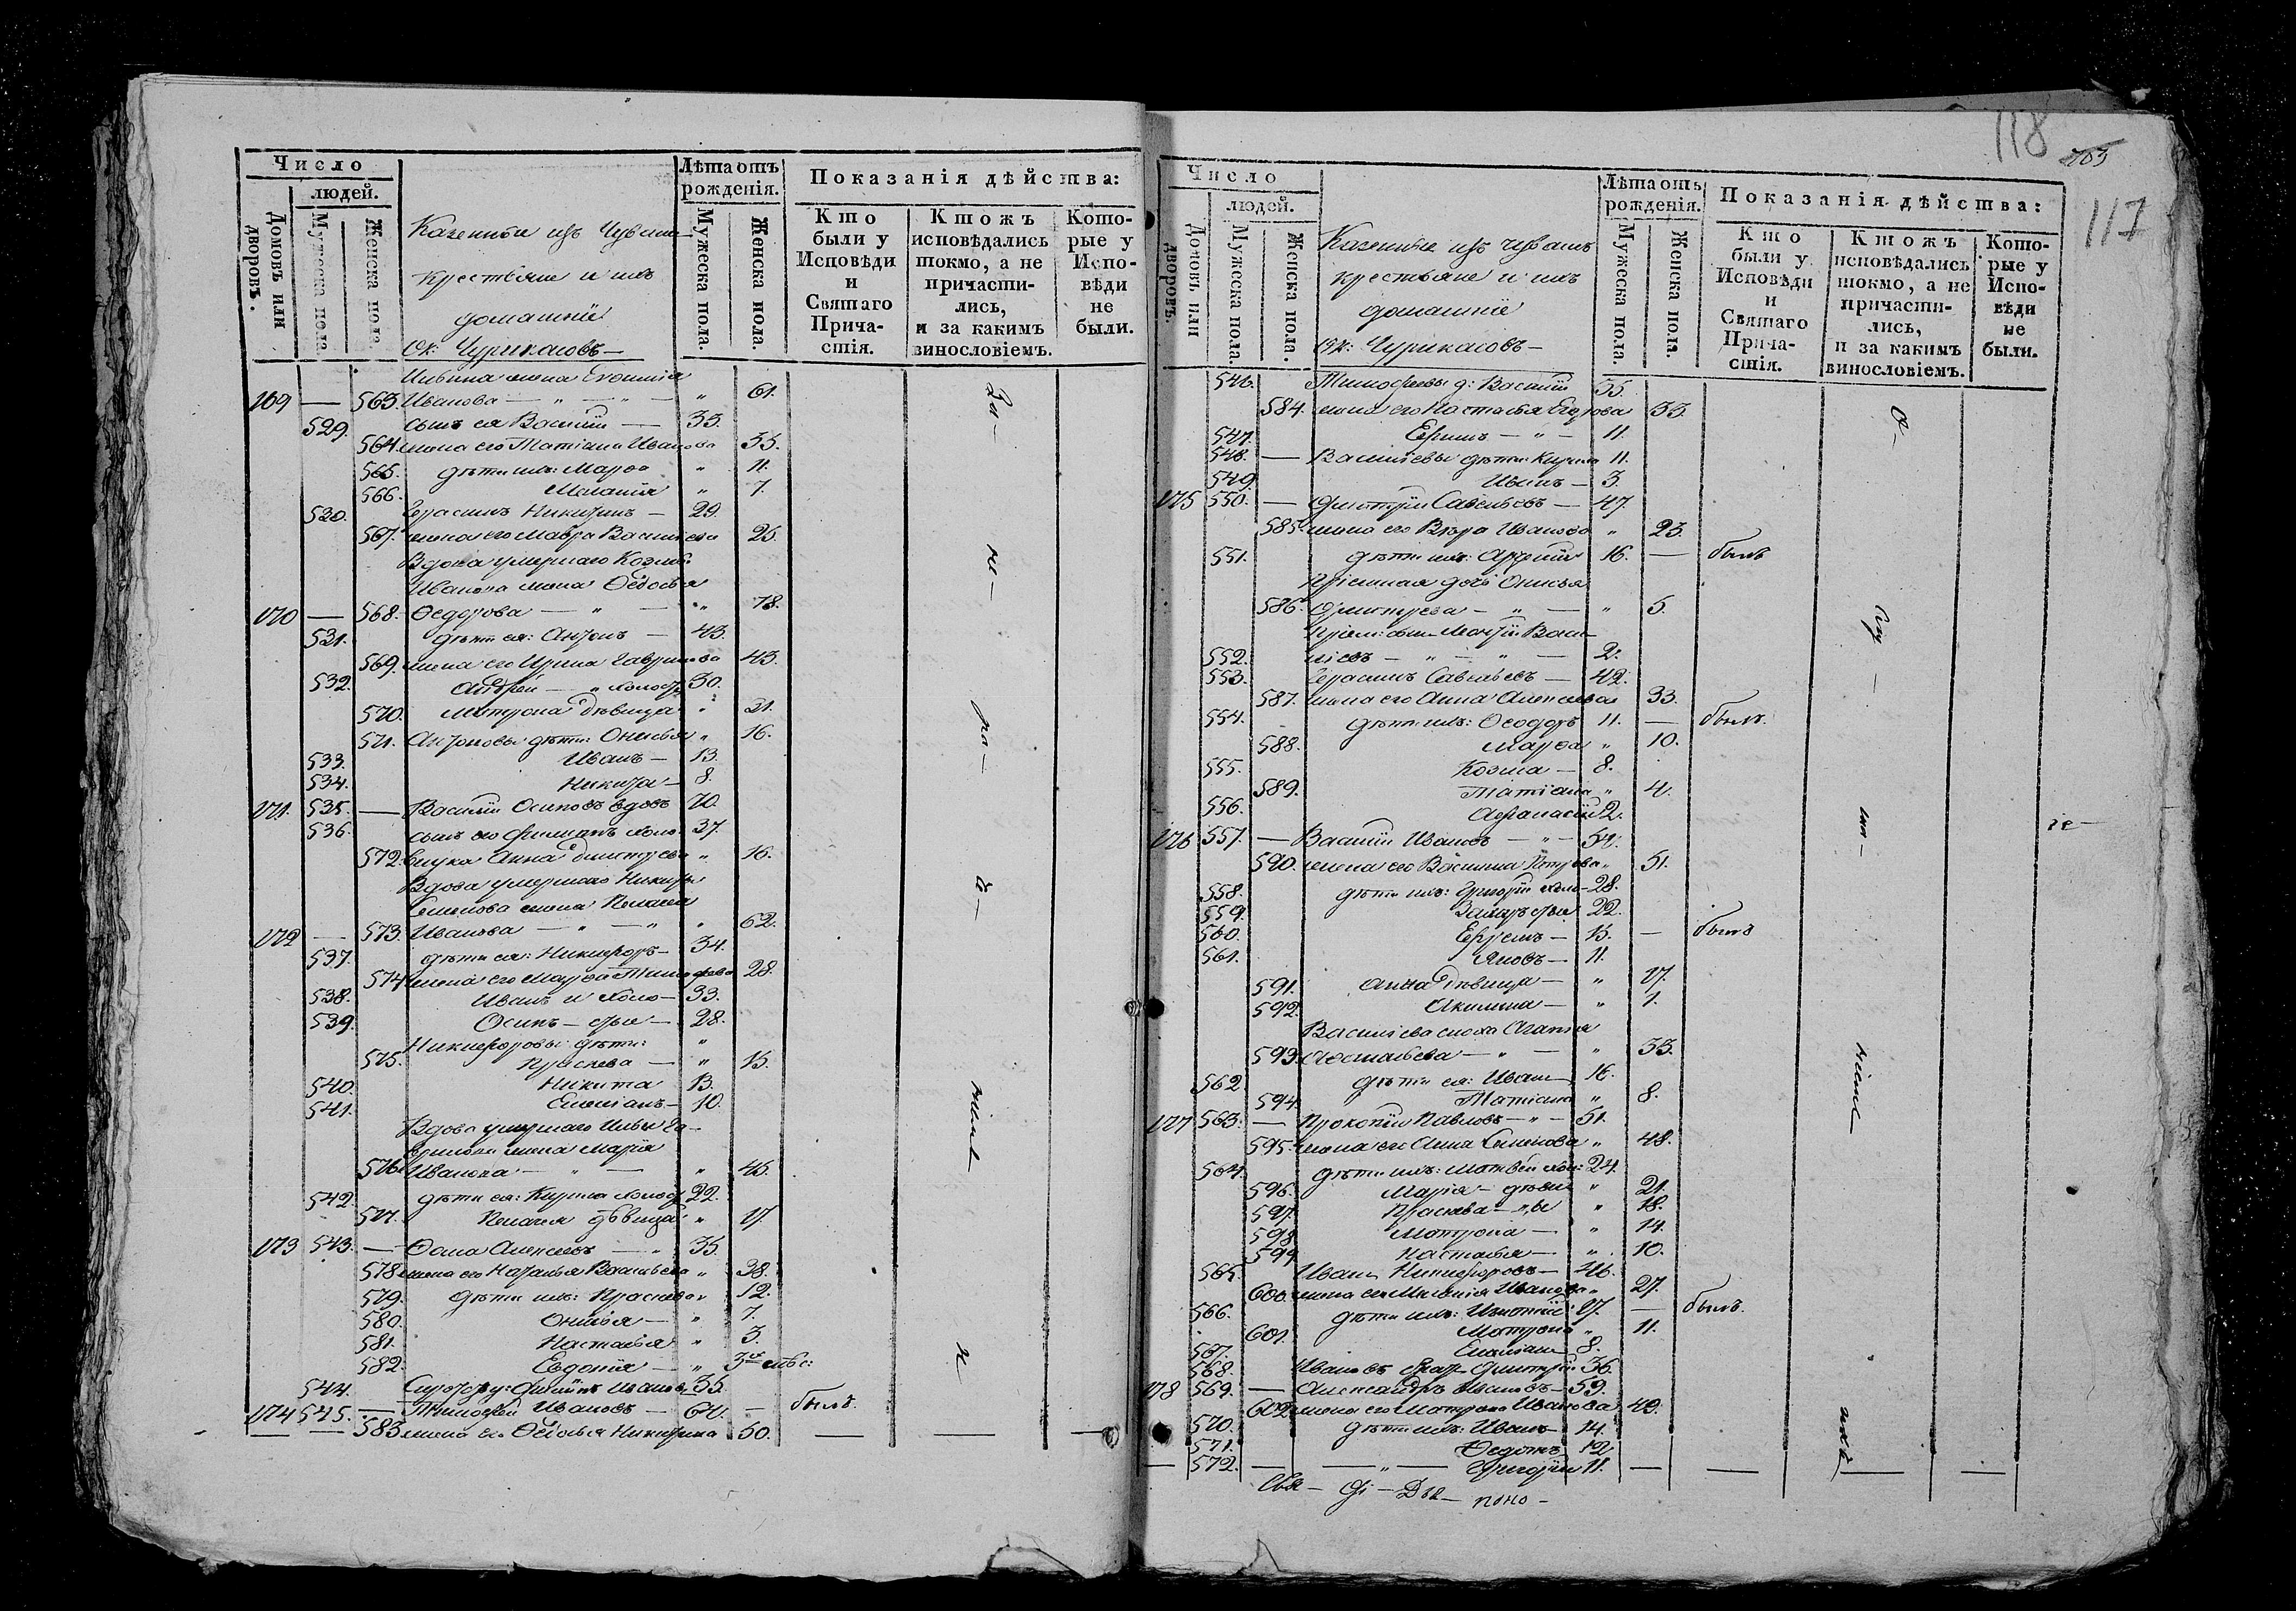 Число
людей.
Домовъ или дворовъ.
Мужеска пола.
Женска пола.
Казенныи изъ Чувашъ
крестьяне и ихъ
домашніе
Ок: Чурикасовъ
Лѣта отъ рожденія.
Мужеска пола.
Женска пола.
Показанія дѣйства:
Кто были у Исповѣди и Святаго Причастія.
Ктожъ исповѣдались токмо, а не причастились, и за какимъ винословіемъ.
Которые у Исповѣди не были.
жена
169 — 563. Иванова — " — " — " 61.
529. сынъ ея Василій — 33.
564. жена его Татіана Иванова 35.
565. дѣти ихъ: Марфа " 11.
566. Меланія " 7.
530. Герасимъ Никитинъ — 29.
567. жена его Мавра Васильева 25.
Вдова умершаго Козмы
Иванова жена Ѳедосья
170 — 568. Ѳедорова — " — " 78.
531. дѣти ея: Антонъ — 43.
569. жена его Ирина Гаврилова 43.
532. Андрей — " холостъ 30.
570. Матрона дѣвица " 21.
571. Антоновы дѣти: Онисья " 16.
533. Иванъ — 13.
534. Никита — 8.
171. 535. — Василій Осиповъ вдовъ 70.
536. сынъ его Филиппъ холо. 37.
572. внука Анна Дмитрева " 16.
Вдова умершаго Никиты
Семенова жена Пелагея
172 — 573. Иванова — " — " " 62.
537. дѣти ея: Никифоръ — 34.
574. жена его Марфа Тимофеева 28.
538. Иванъ и холо — 33.
539. Осипъ — 28.
Никифоровы дѣти: "
575. Праскева — " 15.
540. Никита 13.
541. Емеліанъ — 10.
Вдова умершаго Ильи Га-
врилова жена Марія
576. Иванова — " — " 45.
542. дѣти ея: Кирила холост 22.
577. Пелагея дѣвица " 17.
173 543. — Ѳома Алексеевъ — " 35.
578. жена его Наталья Васильева " 38.
579. дѣти ихъ: Праскева " 12.
580. Онисья — " 7.
581. Настасья " 3.
582. Евдокія — "
544. Филипъ Ивановъ 35.
174 545. — Тимофей Ивановъ — 64. — былъ.
583. жена его Ѳедосья Никитина 50. — — —
За-
не-
ра-
де-
ніемъ
118
703
117
Число
людей.
Домовъ или дворовъ.
Мужеска пола.
Женска пола.
Казенные изъ чувашъ
крестьяне и ихъ
домашніе
ок: Чурикасовъ —
Лѣта отъ рожденія.
Мужеска пола.
Женска пола.
Показанія дѣйства:
Кто были у Исповѣди и Святаго Причастія.
Ктожъ исповѣдались токмо, а не причастились, и за какимъ винословіемъ.
Которые у Исповѣди не были.
546. Тимофеевы д: Василій 35.
584. жена его Настасья Егорова 35.
547. Ефимъ — " — 11.
548. — Васильевы дѣти: Кирила 11.
549. Иванъ — 3.
175 550. — Дмитрій Савельевъ — 47.
585. жена его Вѣра Иванова " 23.
551. дѣти ихъ: 16. — былъ
Пріемная дочь Онисья
586. Дмитрева — " — " 5.
Пріем: сынъ Васи-
552. ліевъ — " — " — 2.
553. Герасимъ Савельевъ — 42.
587. жена его Анна Алексеева 33.
554. дѣти ихъ: Ѳеодоръ 11. — былъ.
588. Марфа " 10.
555. Козма — 8.
589. Татіана " 4.
556. Афанасій 2.
176 557. — Василій Ивановъ — " — 54.
590. жена его Василиса Петрова " 51.
558. дѣти ихъ: Григорій холо — 28.
559. Захаръ 22.
560. Ефремъ — 15. — былъ
561. Яковъ — 11.
591. Анна дѣвица — " 17.
592. Акилина — " 1.
Васильева сноха Агапія
593. — " — " 35.
562. дѣти ея: Иванъ 16.
594. Татіана " 8.
177 563. — Прокопій Павловъ — " — 51.
595. жена его Анна Семенова " 48.
564. дѣти ихъ: Матвей хол: 24.
596. Марія — дѣви " 21.
597. Праскева — " 18.
598. Матрона — " 14.
599. Настасья — " 10.
565. Иванъ Никифоровъ — 46.
600. жена его Иванова " 27.
566. дѣти ихъ: Игнатій 17. — былъ.
601. Матрона " 11.
567. Емеліанъ 8.
568. Ивановъ братъ Дмитрій 36.
178 569. — Александръ Ивановъ — 59.
602. жена его Матрона Иванова 49.
570. дѣти ихъ: Иванъ — 14.
571. Ѳедотъ 12
— 572. — — " — Григорій 11. — — — —
ніемъ